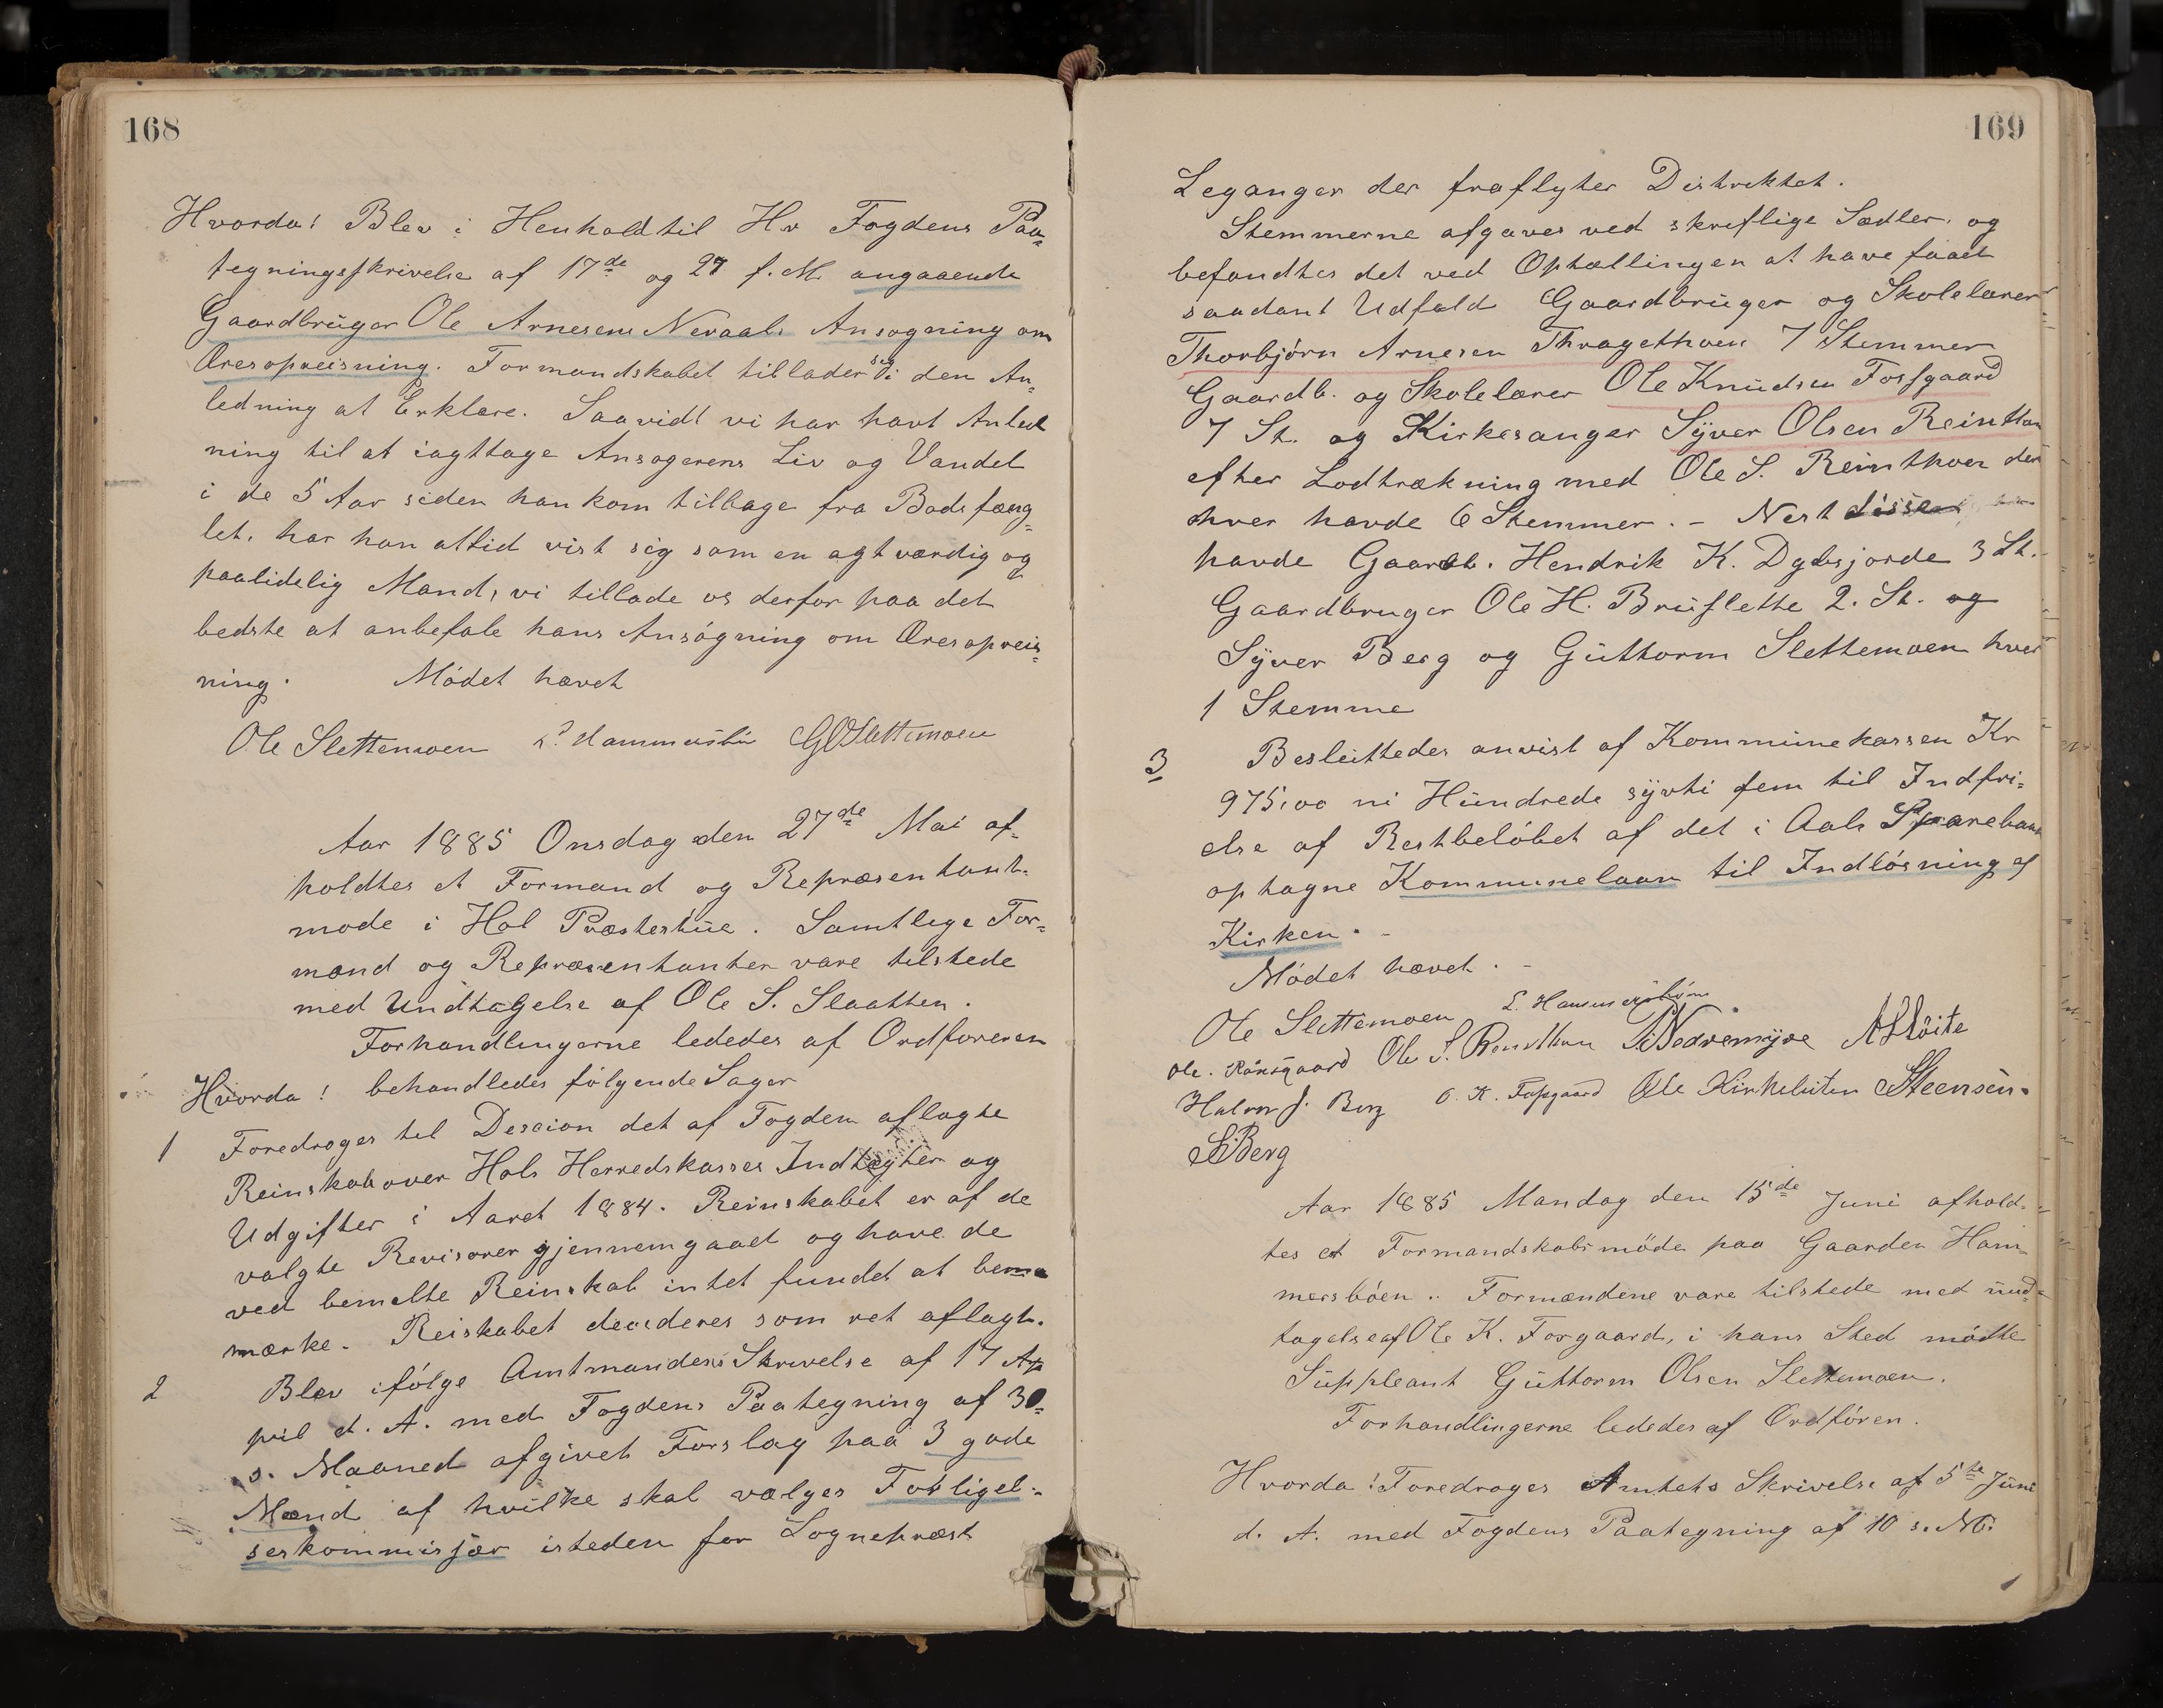 168
Hvorda! Blev i Henhold til Hr Fogdens Paa-
tegningsskrivelse af 17de og 27 f. M. angaaende
Gaardbruger Ole Arnesens Neraals Ansøgning om
Æresopreisning. Formandskabet tillader sig i den An-
ledning at Erklære. Saavidt vi har havt Anled
ning til at iagttage Ansøgerens Liv og Vandel
i de 5 Aar siden han kom tilbage fra Bodsfæng-
let, har han altid vist sig som en agtværdig og
paalidelig Mand, vi tillade os derfor paa det
bedste at anbefale hans Ansøgning om Æresopreis-
ning. Mødet hævet
Ole Slettemoen L. Hammersbøn GOSlettemoen
Aar 1885 Onsdag den 27de Mai af-
holdtes et Formand og Repræsentant-
møde i Hol Præstestue. Samtlige For-
mænd og Repræsentanter vare tilstede
med Undtagelse af Ole S. Slaatten.
Forhandlingerne lededes af Ordføreren
Hvorda! behandledes følgende Sager
1 Foredroges til Descion det af Fogden aflagte
Reinskab over Hols Herredskasses Indtægter og
Udgifter i Aaret 1884. Reinskabet er af de
valgte Revisorer gjennemgaaet og have de
ved bemelte Reinskab intet fundet at bemæ
mærke. Reiskabet decideres som ret aflagt.
2 Blev ifølge Amtmandens Skrivelse af 17 Ap
pril d. A. med Fogdens Paategning af 30-
s. Maaned afgivet Forslag paa 3 gode
Mænd af hvilke skal vælges Forligel-
seskommisjær isteden for Sognepræst
169
Leganger der fraflytter Distriktet.
Stemmerne afgaves ved skriftlige Sedler, og
befandtes det ved Optællingen at have faaet
saadant Udfald Gaardbruger og Skolelærer
Thorbjørn Arnesen Thragethoen 7 Stemmer
Gaardb. og Skolelærer Ole Knudsen Fosgaard
7 St. og Kirkesanger Syver Olsen Reinthon
efter Lodtrækning med Ole S. Reinthoen der
hver havde 6 Stemmer. - Nest disse
havde Gaardb. Hendrik K. Dybsjorde 3 St.
Gaardbruger Ole H. Bruslette 2. St. og
Syver Berg og Guttorm Slettemoen hver
1 Stemme
3 Besluttedes anvist af Kommunekassen Kr
975,00 ni Hundrede syvti fem til Indfri-
else af Restbeløbet af det i Aals Sparebank
optagne Kommunelaan til Indløsning af
Kirken. -
Mødet hævet. -
Ole Slettemoen L. Hammersbøen
Ole. Raansgaard Ole S. Reinthon Nedremyre
O. K. Fosgaard Ole Kirkebiten Steensen.
SBerg
Aar 1885 Mandag den 15de Juni afhold-
tes et Formandskabsmøde paa Gaarden Ham-
mersbøen. Formændene vare tilstede med und-
tagelse af Ole K. Forgaard, i hans Sted mødte
Suppleant Guttorm Olsen Slettemoen.
Forhandlingerne lededes af Ordføren.
Hvorda! Foredroges Amtets Skrivelse af 5te Juni
d. A. med Fogdens Paategning af 10 s. M.